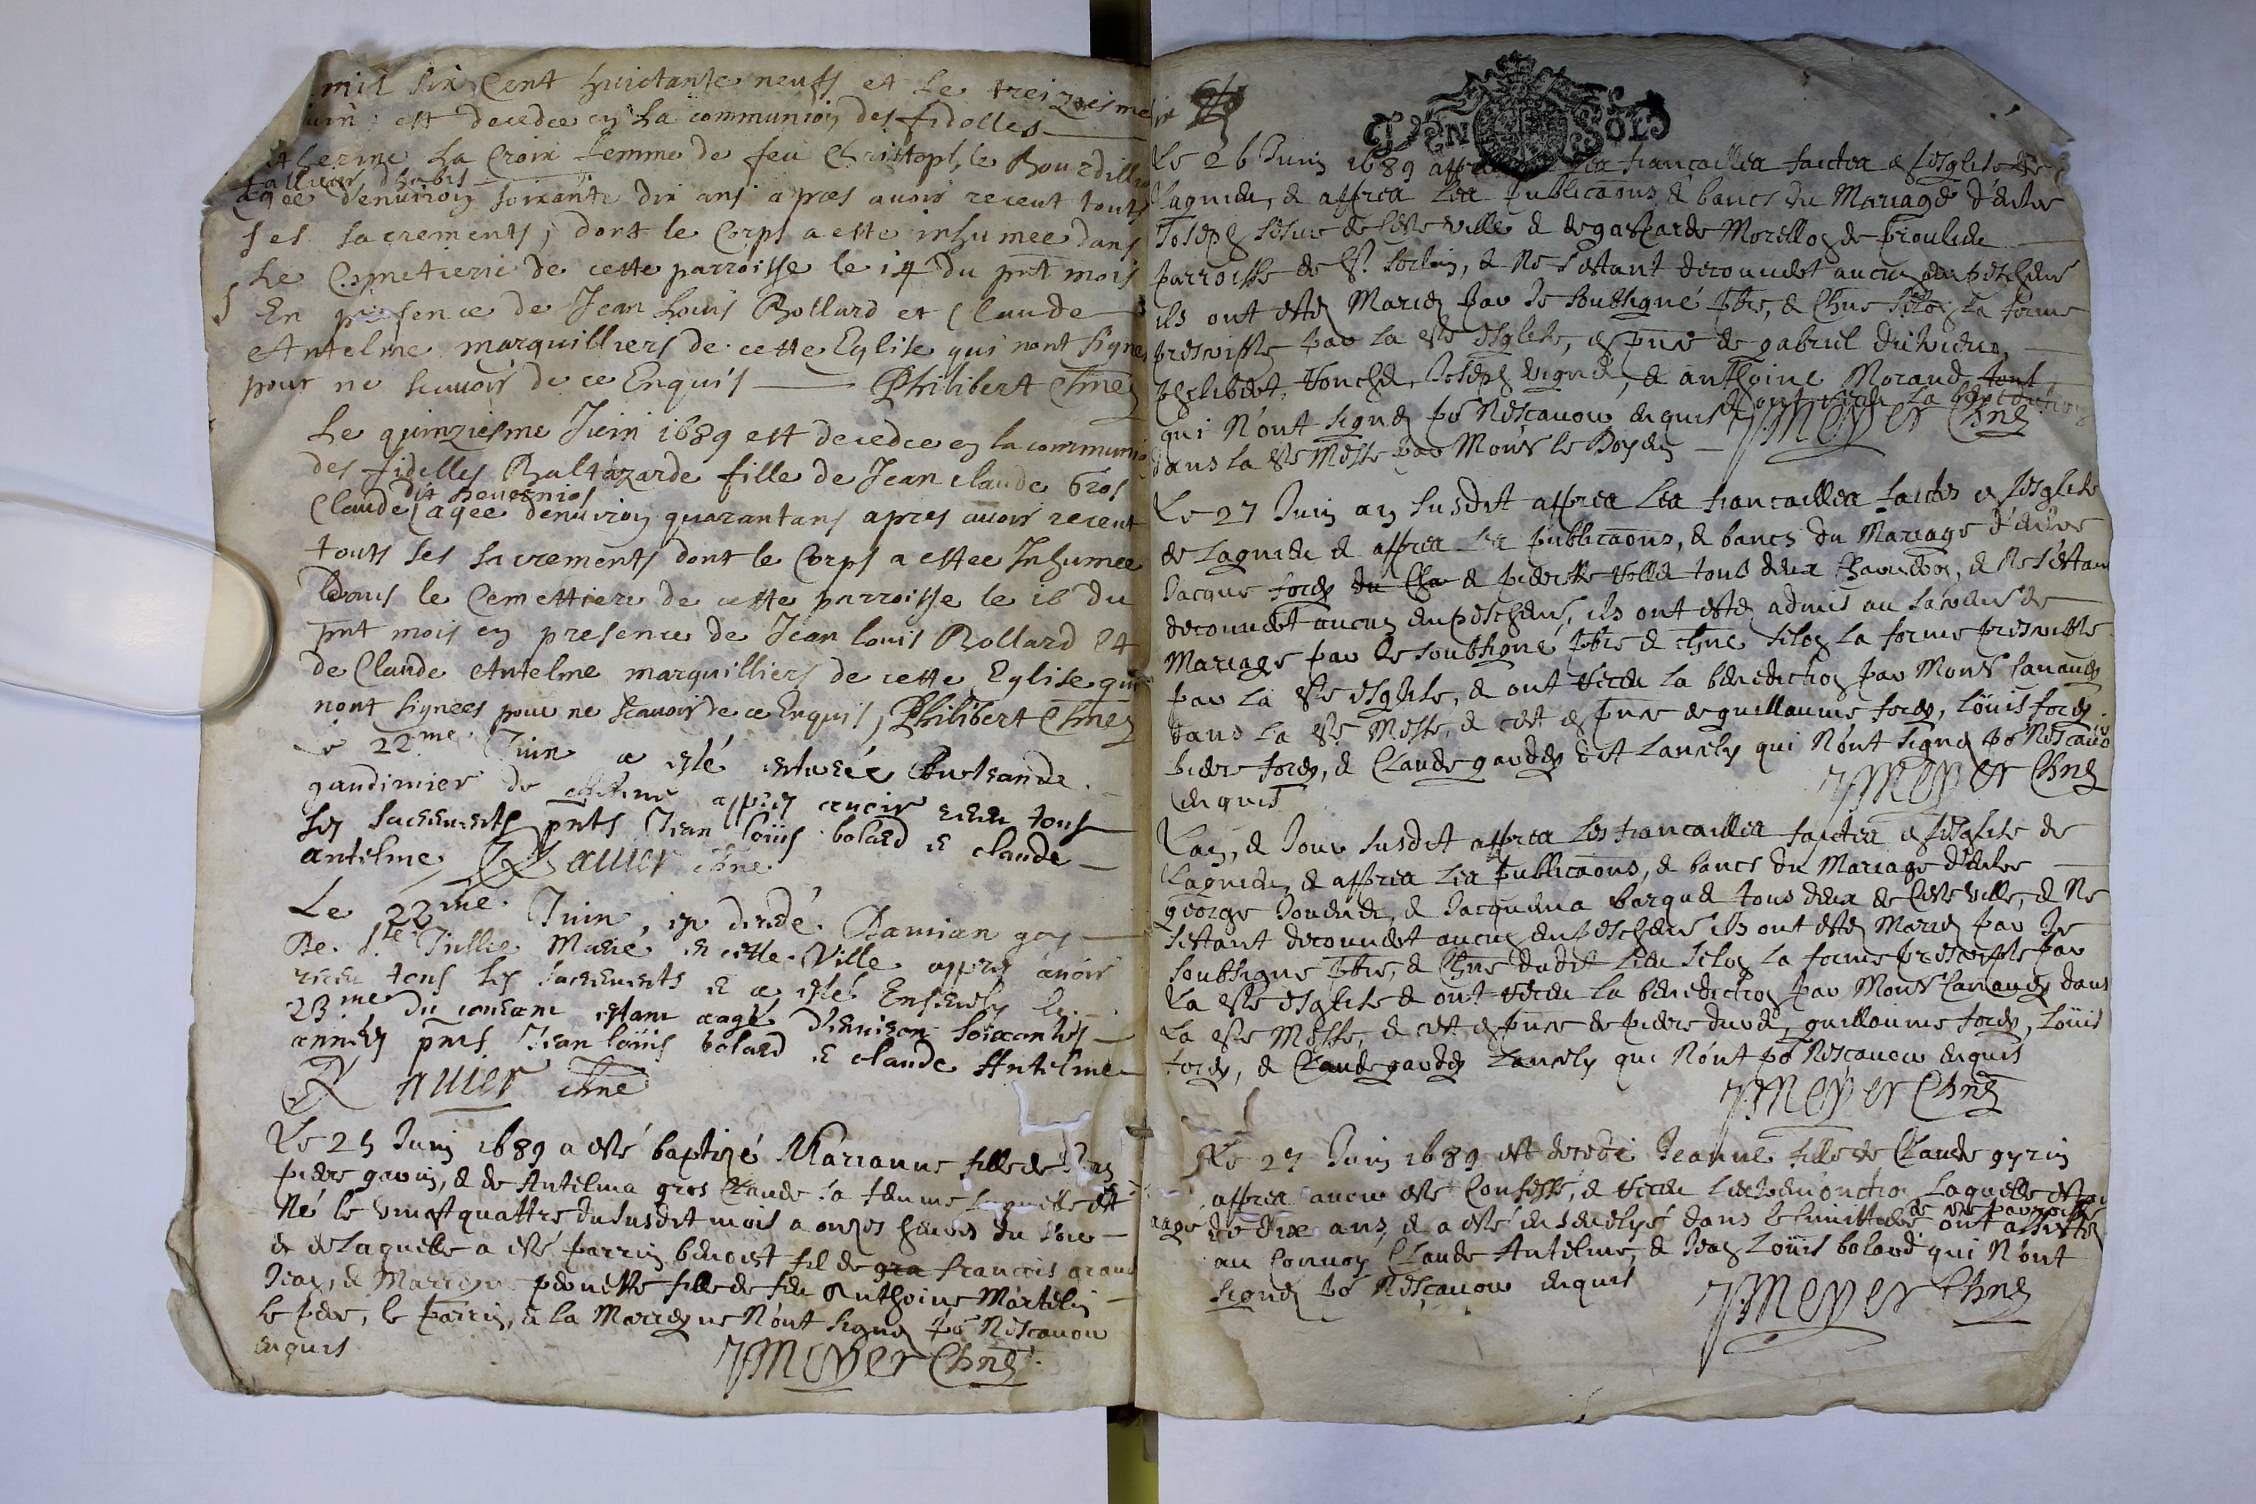 mil six Cent huictante neufs et Le treiziesme
est decedee en La communion des fidelles
La Croix femme de feu Christophle Bourdillon
tallieur dhabis
agee denuiron soixante dix ans apres auoir receut touts
ses sacrements, dont le Corps a este inhumee dans
Le Cymetierre de cette parroisse le 14 du pnt mois
En presence de Jean Louis Bollard et Claude
Antelme marquilliers de cette Eglise qui nont signes
pour ne scauoir de ce Enquis Philibert Chne
Le quinziesme Juin 1689 est decedee en la communion
des fidelles Baltazarde fille de Jean claude Gros
Claude agee denuiron quarantans apres auoir receut
touts ses sacrements dont le Corps a estee Inhumee
Dans le Cemettiere de cette parroisse le 16 du
pnt mois en presence de Jean louis Bollard et
de Claude Antelme marquilliers de cette Eglise qui
nont signees pour ne scauoir de ce Enquis, Philibert Chne
Le 22me Juin a esté
gaudimier de appres auoir receu tous
les sacrements pnts Jean loüis bolard e claude
antelme, Rauier chne
Le 22me Juin, est decedé Damian gay
De. Ste Jullie Marié en cette Ville appres auoir
receu tous les sacrements e a esté Enseuely le
23me du courant estant aagé d'enuiron soixantes
années pnts Jean loüis bolard e claude Antelme
Rauier Chne
Le 25 Juin 1689 a esté baptizé Marianne fille de Jean
piere gauin, & de Antelma gros Claude sa femme laquelle est
Né le vingtquattre du susdit mois a onzes heures du soir
& de Laquelle a esté parrin benoist fil de gra francois grand
Jean, & Marreyne pernette fille de feu Anthoine Martelin
le pere, le parrin, & la Marreyne N'ont signe po Nescauoir
enquis JMeyer Chne
GEN SOLS
Le 26 Juin 1689 appres Les fiancailles faictes en Lesglise de
Lagnieu, & appres Les publicaons & bancs du Mariage d'entre
Joseph de Ceste ville & de gaspharde Morellon de proulieu
parroisse de St. Sorlin, & Ne s'estant decouuert aucun empeschement
ils ont estes Maries par Je soubsigné ptre, & Chne selon la forme
prescripte par La Ste esglise, en pnce de gabriel
philibert, Joseph vigne, & anthoine Morand tous
ont receu La benediction
qui N'ont signe po Nescauoir enquis JMeyer Chne
dans la Ste Messe par Monsr le Doyen
Le 27 Juin an susdit appres Les fiancailles faictes en Lesglise
de Lagnieu & appres Les publicaons, & bancs du Mariage d'entre
Jacque forey du Cha & pierette tous deux, & Ne s'estant
decouuert aucun empeschement, ils ont estes admis au sacrement de
Mariage par Je soubsigné ptre & chne selon la forme prescripte
par La Ste esglise, & ont receu La benediction par Monsr sauanes
dans La Ste Messe, & cet en pnce de guillaume forey, Loüis forey
piere forey, & Claude gardey dit Lanely qui N'ont signe po Nescauoir
enquis JMeyer Chne
L'an, & Jour susdit appres Les fiancailles faictes en Lesglise de
Lagnieu, & appres Les publicaons, & bancs du Mariage d'entre
george, & Jacquema barque tous deux de Ceste ville, & Ne
s'estant decouuert aucun empeschement ils ont estes Maries par Je
soubsigne ptre, & Chne dudit Lieu selon La forme prescripte par
La Ste esglise & ont receu La benediction par Monsr sauanes dans
La Ste Messe, & cet en pnce de piere, guillaume forey, Loüis
forey, & Claude gardey Lanely qui N'ont po Nescauoir enquis
JMeyer Chne
Le 27 Juin 1689 est decedé Jeanne fille de Claude gyrin
appres auoir esté Confessé, & receu L'extremonction Laquelle estoit
aagé de dix ans, & a esté enseuelye dans le Cimittiere ont assistes
de ste parroisse
au Conuoy Claude Antelme, & Jean Loüis bolard qui N'ont
signe po Nescauoir enquis JMeyer Chne